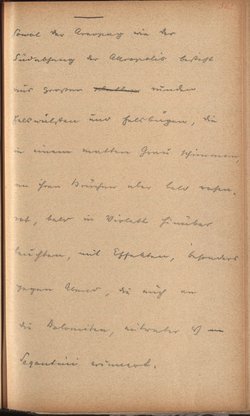 Sowol der Areopag wie der
Südabhang der Akropolis besteht
aus großen runden
Felswülsten und Felsbügen, die
in einem matten Grau schimmern
an ihren Brüchen aber bald rosen-
rot, bald in Violett hinüber
leuchten, mit Effekten, besonders
gegen Abend, die auch an
die Dolomiten, mitunter an
Segantini erinnert.